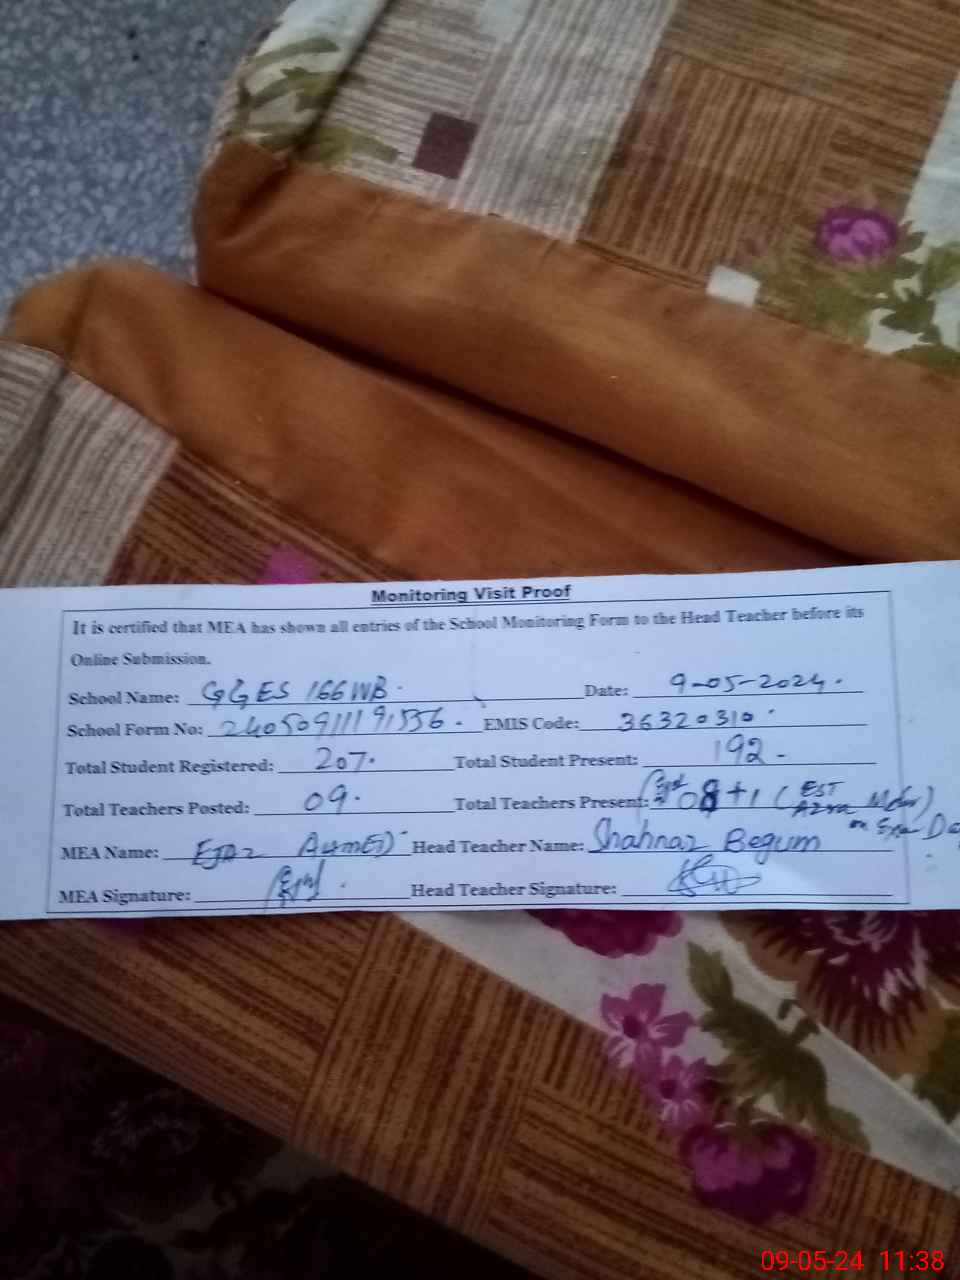 Monitoring Visit Proof
It is certified that MEA has shown all entries of the School Monitoring Form to the Head Teacher before its
Online Submission.
School Name: GGES 166WB. Date: 9-05-2024.
School Form No: EMIS Code: 36320310
Total Student Registered: 207. Total Student Present: 192
Total Teachers Posted: 09. Total Teachers Present: 08+1 (EST
Azra on
MEA Name: EJAZ AHMED Head Teacher Name: Shahnaz Begum
MEA Signature: Head Teacher Signature:
09-05-24 11:38